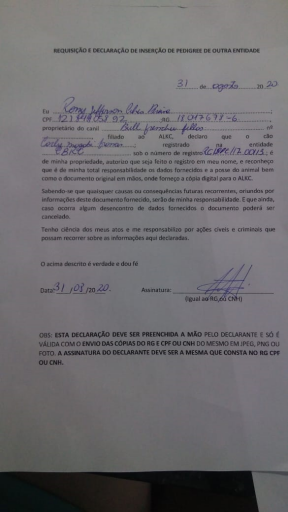 REQUISIÇÃO E DECLARAÇÃO DE INSERÇÃO DE PEDIGREE DE OUTRA ENTIDADE
31 de agosto 20 20
Eu Jefferson
CPF RG
proprietário do canil Bull frenchie fellos nº
, filiado ao ALKC, declaro que o cão
registrado na entidade
sob o número de registro , é
de minha propriedade, autorizo que seja feito o registro em meu nome, e reconheço
que é de minha total responsabilidade os dados fornecidos e a posse do animal bem
como o documento original em mãos, onde forneço a cópia digital para o ALKC.
Sabendo-se que quaisquer causas ou consequências futuras recorrentes, oriundos por
informações deste documento fornecido, serão de minha responsabilidade. E que ainda,
caso ocorra algum desencontro de dados fornecidos o documento poderá ser
cancelado.
Tenho ciência dos meus atos e me responsabilizo por ações cíveis e criminais que
possam recorrer sobre as informações aqui declaradas.
O acima descrito é verdade e dou fé
Data: 31 /20 20. Assinatura:
(Igual ao RG ou CNH)
OBS: ESTA DECLARAÇÃO DEVE SER PREENCHIDA A MÃO PELO DECLARANTE E SÓ É
VÁLIDA COM O ENVIO DAS CÓPIAS DO RG E CPF OU CNH DO MESMO EM JPEG, PNG OU
FOTO. A ASSINATURA DO DECLARANTE DEVE SER A MESMA QUE CONSTA NO RG CPF
OU CNH.